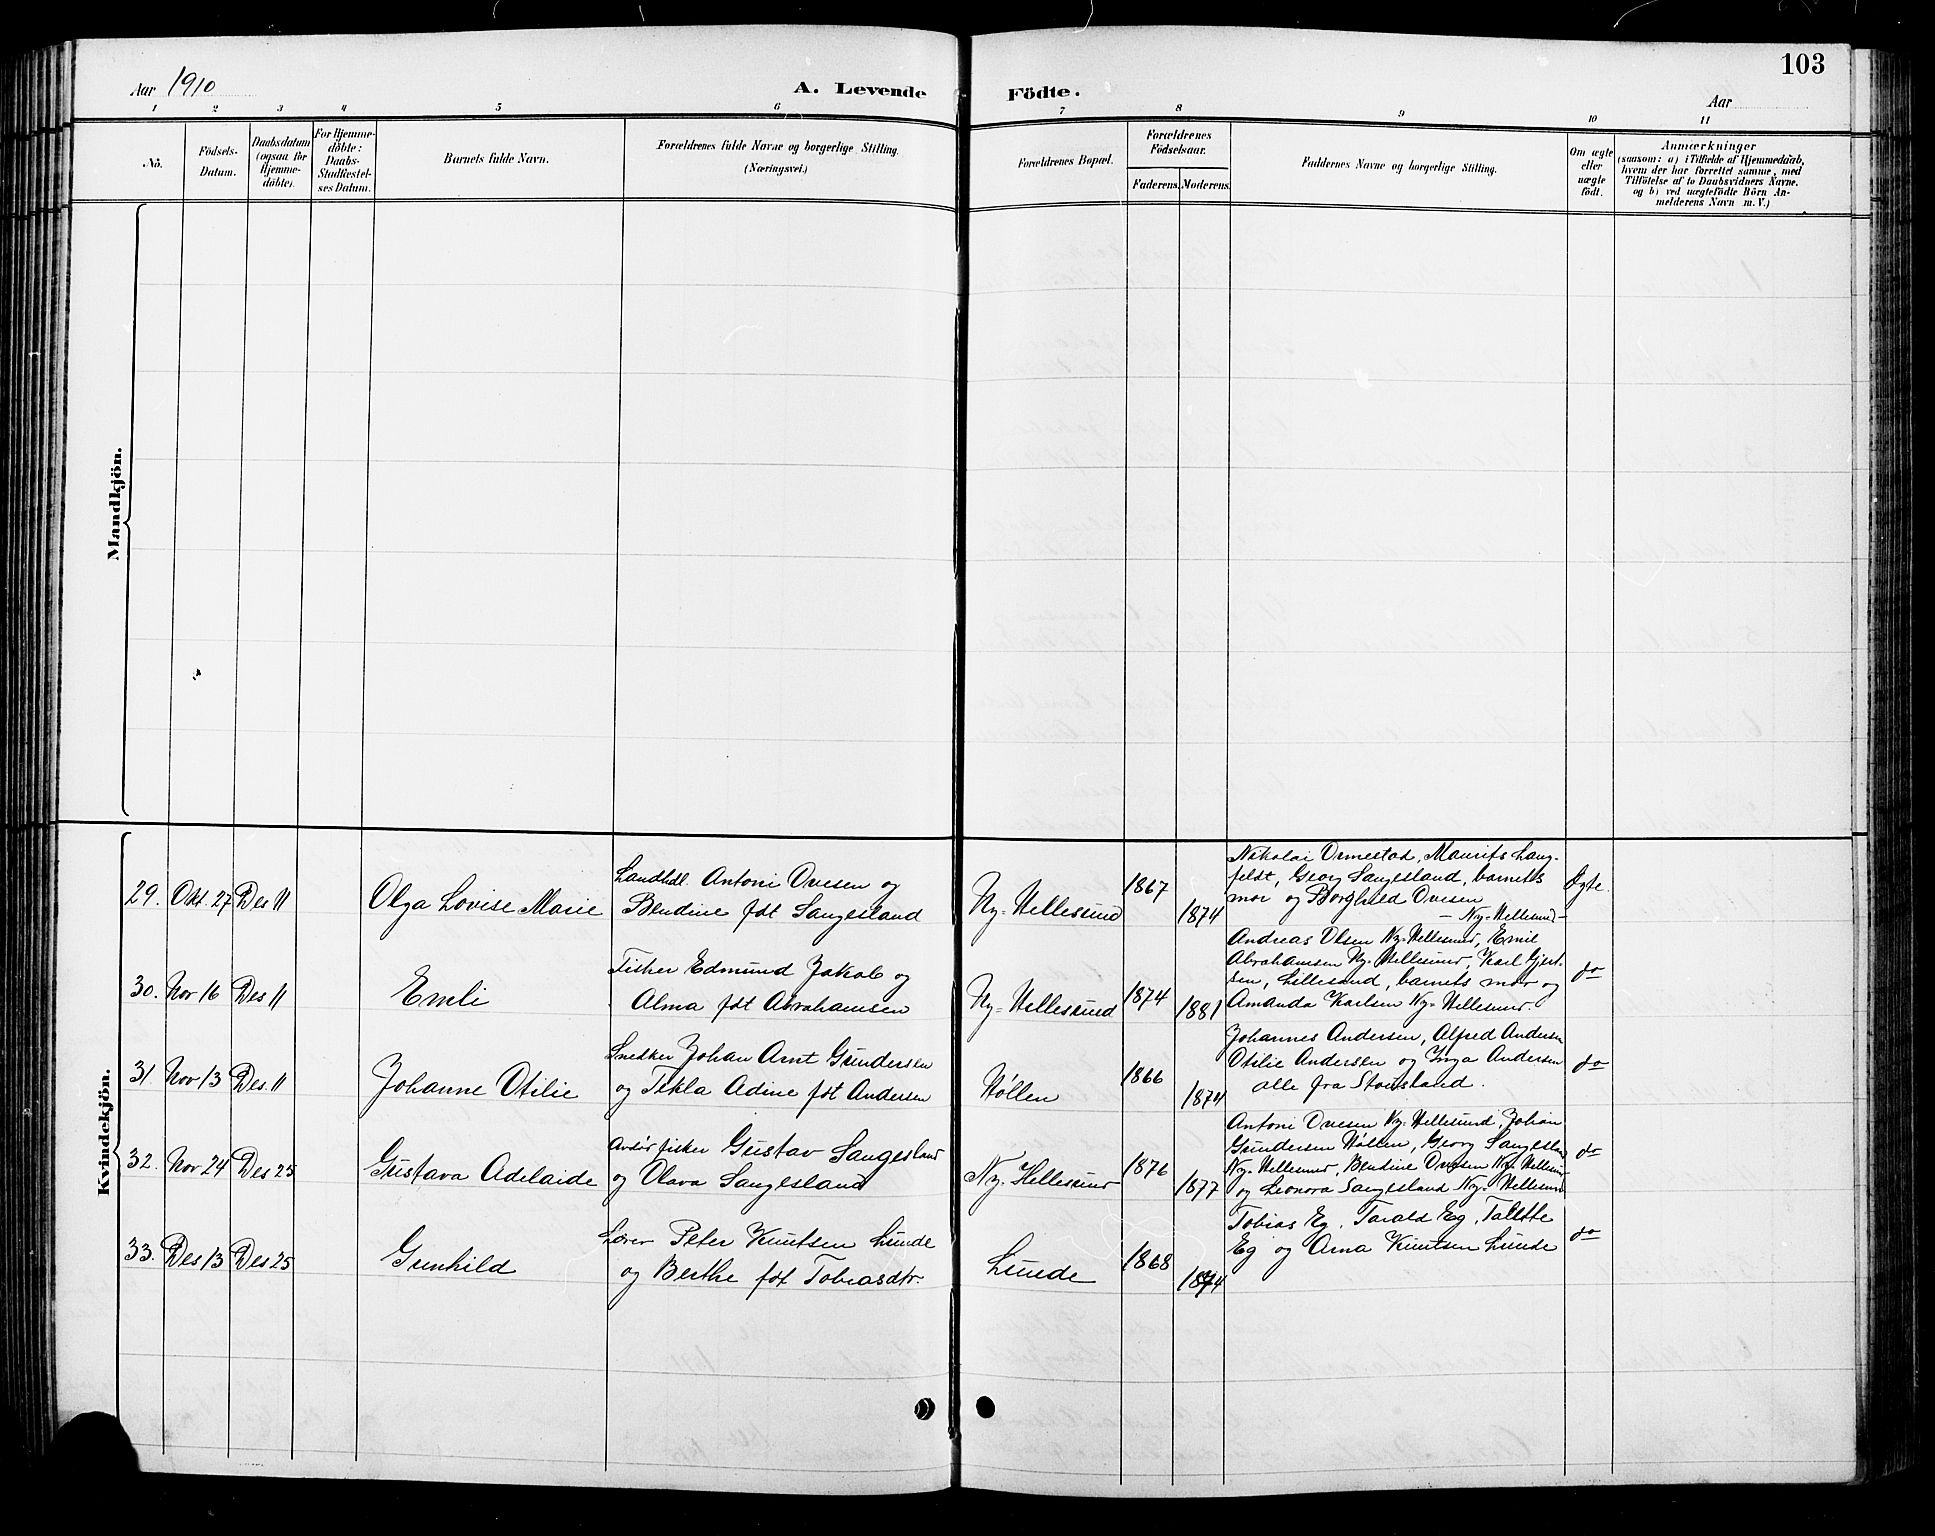 103
Aar 1910
A. Levende Födte.
Aar
1 2 3 4 5 6 7 8 9 10 11
No.
Födsels-
Datum.
Daabsdatum
(ogsaa for
Hjemme-
döbte).
For Hjemme-
döbte:
Daabs-
Stadfæstel-
ses Datum.
Barnets fulde Navn.
Forældrenes fulde Navne og borgerlige Stilling.
(Næringsvei.)
Forældrenes Bopæl.
Forældrenes
Födselsaar.
Faderens. Moderens.
Faddernes Navne og borgerlige Stilling.
Om ægte
eller
uægte
födt.
Anmærkninger
(saasom: a) i Tilfælde af Hjemmedaab,
hvem der har forrettet samme, med
Tilföielse af to Daabsvidners Navne.
og b) ved uægtefödte Börn An-
melderens Navn m. V.)
Mandkjön.
Kvindekjön.
29. Okt. 27 Des 11
Olga Lovise Marie
Landhdl. Antoni Ovesen og
Bendine fdt Sangesland
Ny-Hellesund
1867
1874
Nikolai Ormestad, Maurits Lang-
feldt, Georg Sangesland, barnets
mor og Borghild Ovesen
- Ny-Hellesund -
Ægte.
30. Nov 16 Des 11
Emli
Fisker Edmund Jakob og
Alma fdt Abrahamsen
Ny-Hellesund
1874
1881
Andreas Olsen Ny-Hellesund, Emil
Abrahamsen Ny-Hellesund, Karl Gjert-
sen, Lillesand, barnets mor og
Amanda Karlsen Ny-Hellesund.
do
31. Nov 13 Des 11
Johanne Otilie
Snedker Johan Arnt Gundersen
og Tekla Adine fdt Andersen
Höllen
1866
1874
Johannes Andersen, Alfred Andersen
Otilie Andersen og Inga Andersen
alle fra Stousland.
do
32. Nov 24 Des 25
Gustava Adelaide
Avdöd fisker Gustav Sangesland
og Olava Sangesland
Ny-Hellesund
1876
1877
Antoni Ovesen Ny-Hellesund, Johan
Gundersen Höllen, Georg Sangesland
Ny-Hellesund, Bendine Ovesen Ny-Hellesund
og Leonora Sangesland Ny-Hellesund
do
33. Des 13 Des 25
Gunhild
Lærer Peter Knutsen Lunde
og Berthe fdt Tobiasdtr.
Lunde
1868
1874
Tobias Eg, Tarald Eg, Talette
Eg og Arna Knutsen Lunde
do